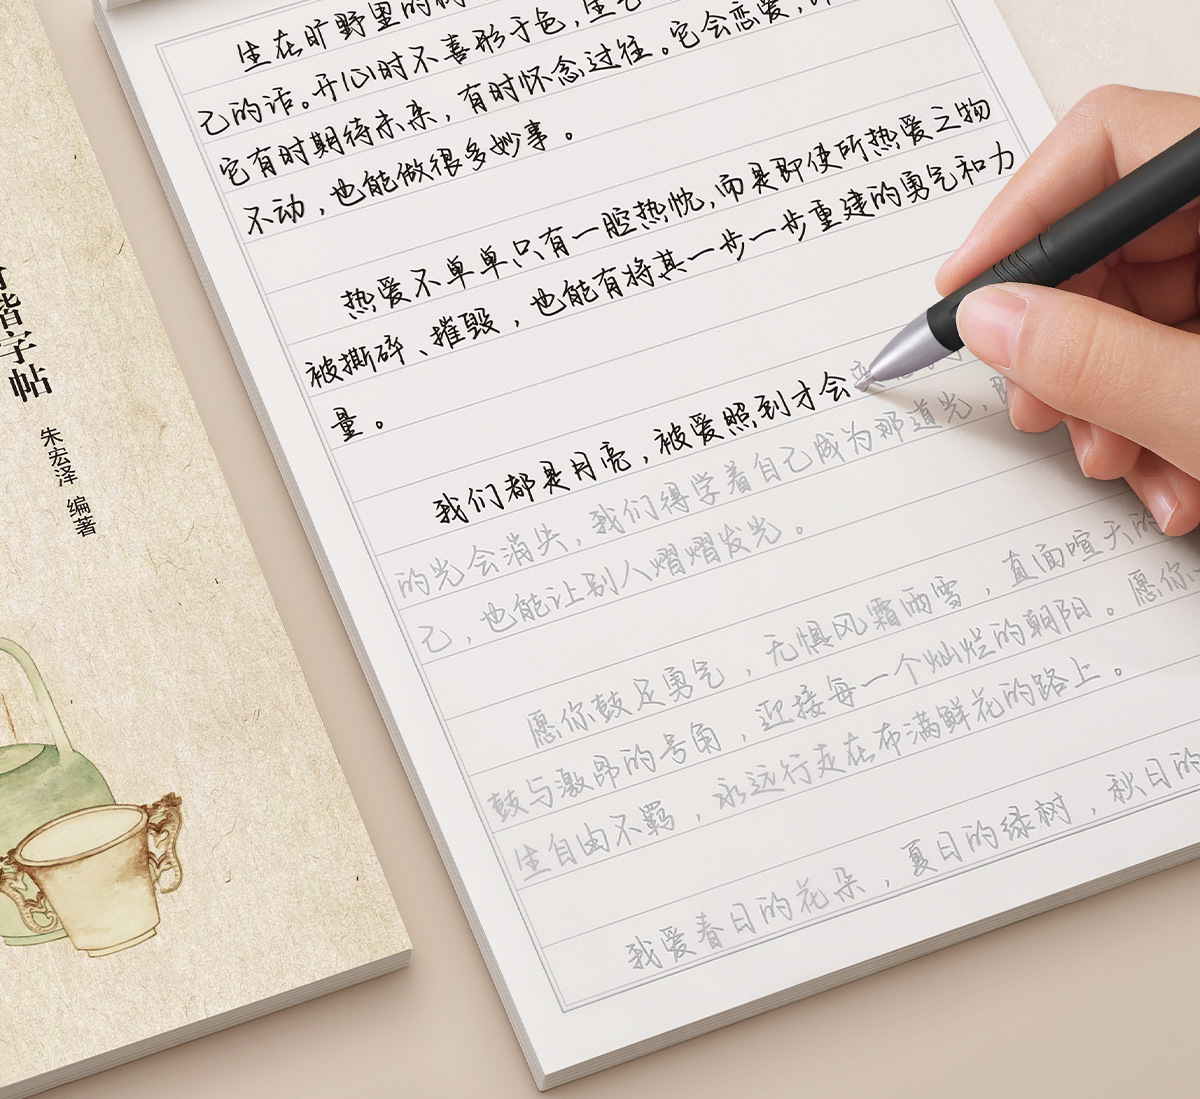 生在旷野里的树
己的话。开心时不喜形于色，
它有时期待未来，有时怀念过往。它会恋爱，
不动，也能做很多妙事。
热爱不单单只有一腔热忱，而是即使所热爱之物
被撕碎、摧毁，也能有将其一步一步重建的勇气和力
量。
我们都是月亮，被爱照到才会
的光会消失，我们得学着自己成为那道光，
己，也能让别人熠熠发光。
愿你鼓足勇气，无惧风霜雨雪，直面喧天的
鼓与激昂的号角，迎接每一个灿烂的朝阳。愿你
生自由不羁，永远行走在布满鲜花的路上。
我爱春日的花朵，夏日的绿树，秋日的
楷字帖
朱宏泽 编著